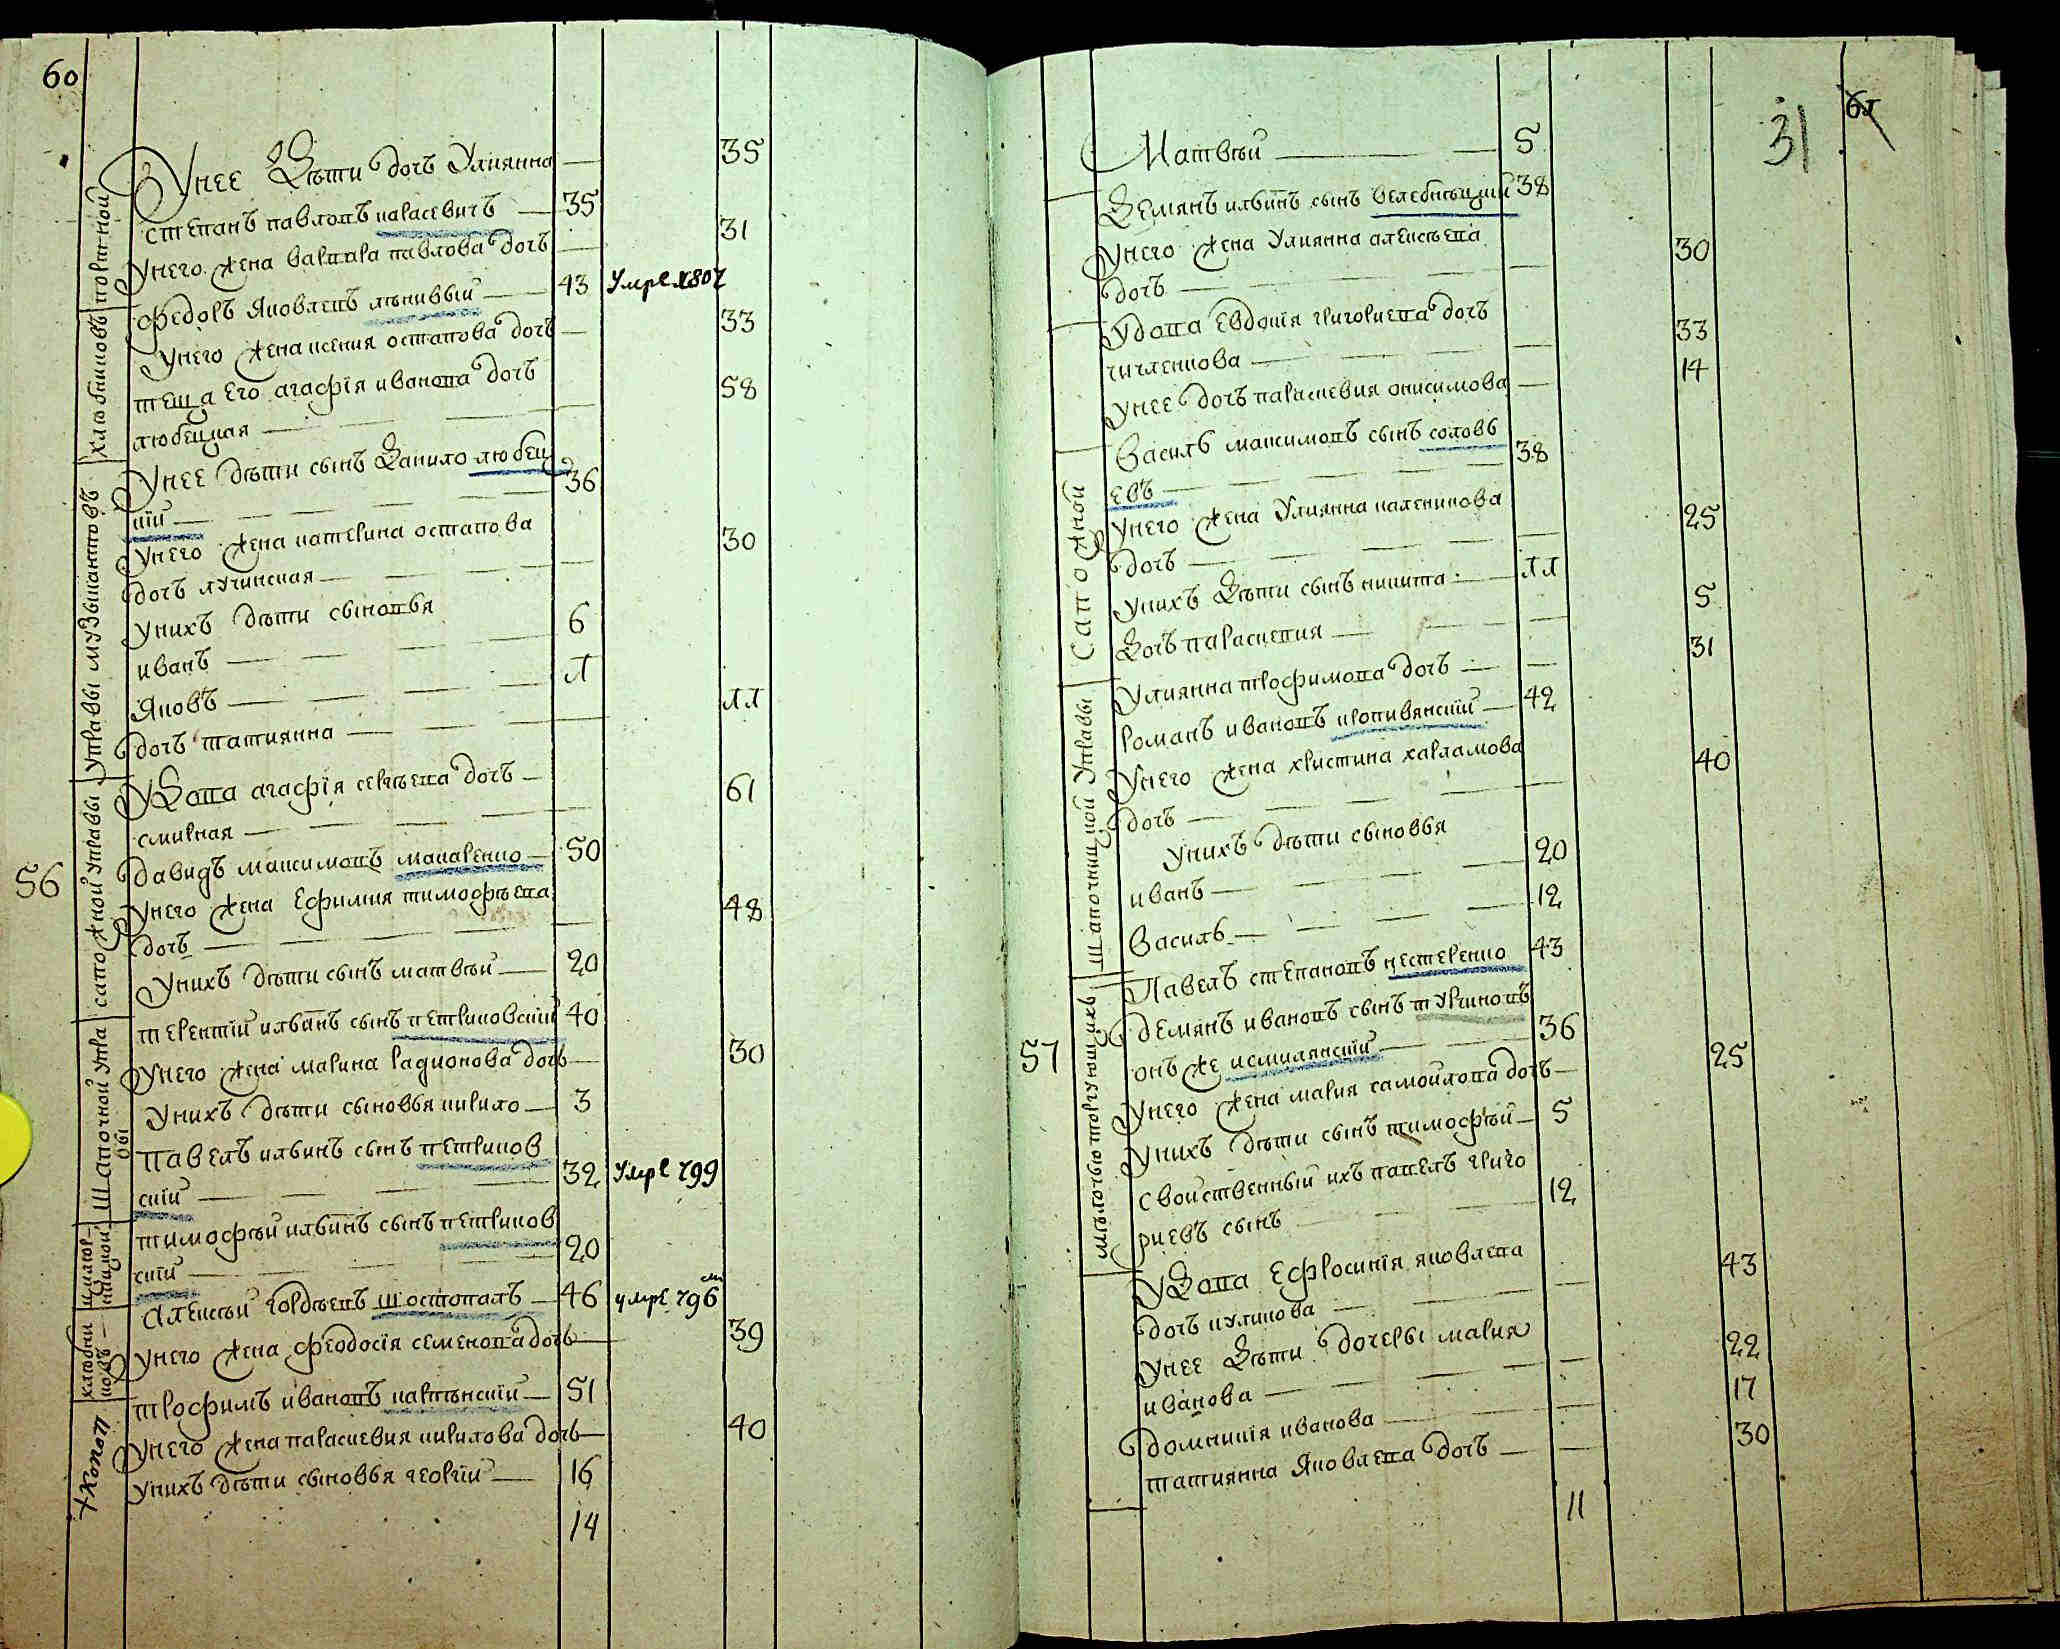 60
Унее Дѣти дочь Улиянна — 35
степанъ павловъ карасевичъ — 35
унего жена варвара павлова дочь — 31
федоръ Яковлевъ лѣнивый — 43 Умре 1802
унего жена ксения остапова дочь — 33
теща его агафія иванова дочь 58
любецкая —
унее дѣти сынъ Данило любец
кій — 36
унего жена катерина остапова 30
дочь лучинская —
унихъ дѣти сыновья
иванъ — 6
Яковъ — 1
дочь татиянна — 11
удова агафія сергѣева дочь — 61
смирная —
56
давидъ максимовъ макаренко — 50
унего жена Ефимия тимофѣева 48
дочь —
унихъ дѣти сынъ матвѣй — 20
терентій ильинъ сынъ петриковскій 40
унего жена марина радионова дочь — 30
унихъ дѣти сыновья кирило — 3
павелъ ильинъ сынъ петриков
скій — 32 Умре 799
тимофѣй ильинъ сынъ петриков
скій — 20
Алексѣй гордѣевъ шостопалъ — 46 умре 796
унего жена феодосія семенова дочь — 39
трофимъ ивановъ карпѣнскій — 51
унего жена параскевия кирилова дочь — 40
унихъ дѣти сыновья георгій — 16
14
портной
хлѣбниковъ
управы музыкантовъ
сапожной управы
Шапочной упра
хлѣбни
ковъ
31
61
Матвѣй — 5
Демянъ ильинъ сынъ велебнѣцкий 38
унего жена Улиянна алексѣева 30
дочь —
Удова Евдокія григориева дочь 33
кичленкова —
унее дочь параскевия онисимова — 14
Василь максимовъ сынъ соловь
евъ — 38
унего жена Улиянна каленикова 25
дочь —
унихъ Дѣти сынъ никита — 11
Дочь параскевия — 5
Улиянна трофимова дочь — 31
романъ ивановъ кропивянский — 42
Унего жена христина харламова 40
дочь —
унихъ дѣти сыновья
иванъ — 20
Василь — 12
Павелъ степановъ нестеренко 43
57
демянъ ивановъ сынъ турчиновъ
онъ же исмилянскій — 36
унего жена мария самойлова дочь — 25
унихъ дѣти сынъ тимофѣй — 5
свойственный ихъ павелъ григо
риевъ сынъ — 12
удова Ефросинія яковлева 43
дочь куликова —
унее Дѣти дочеры мария 22
иванова —
домникія иванова — 17
татиянна Яковлева дочь — 30
11
Сапожной
Шапочницкой управы
мѣлочью торгующихъ